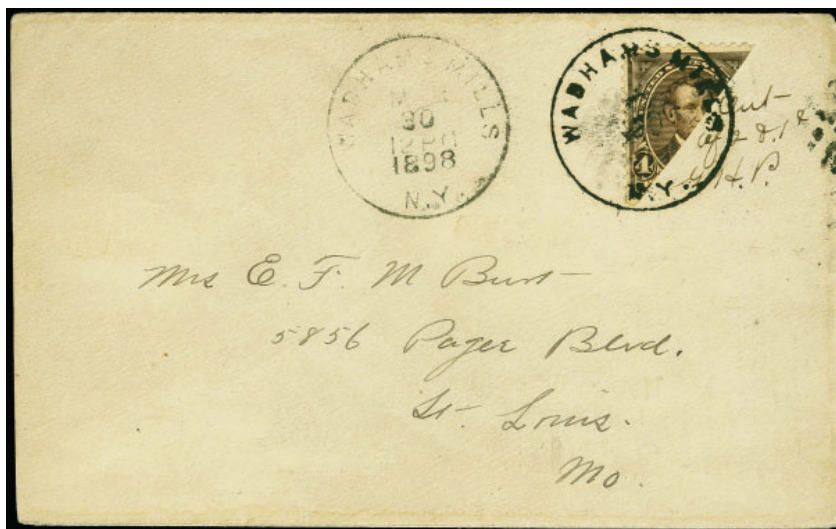 WADHAMS MILLS
30
12 PM
1898
N.Y.
WADHAMS MILLS
N.Y.
4
out
of 2 & 1 ¢
H.P.
Mrs E. F. M Burt
5856 Page Blvd.
St. Louis.
Mo.